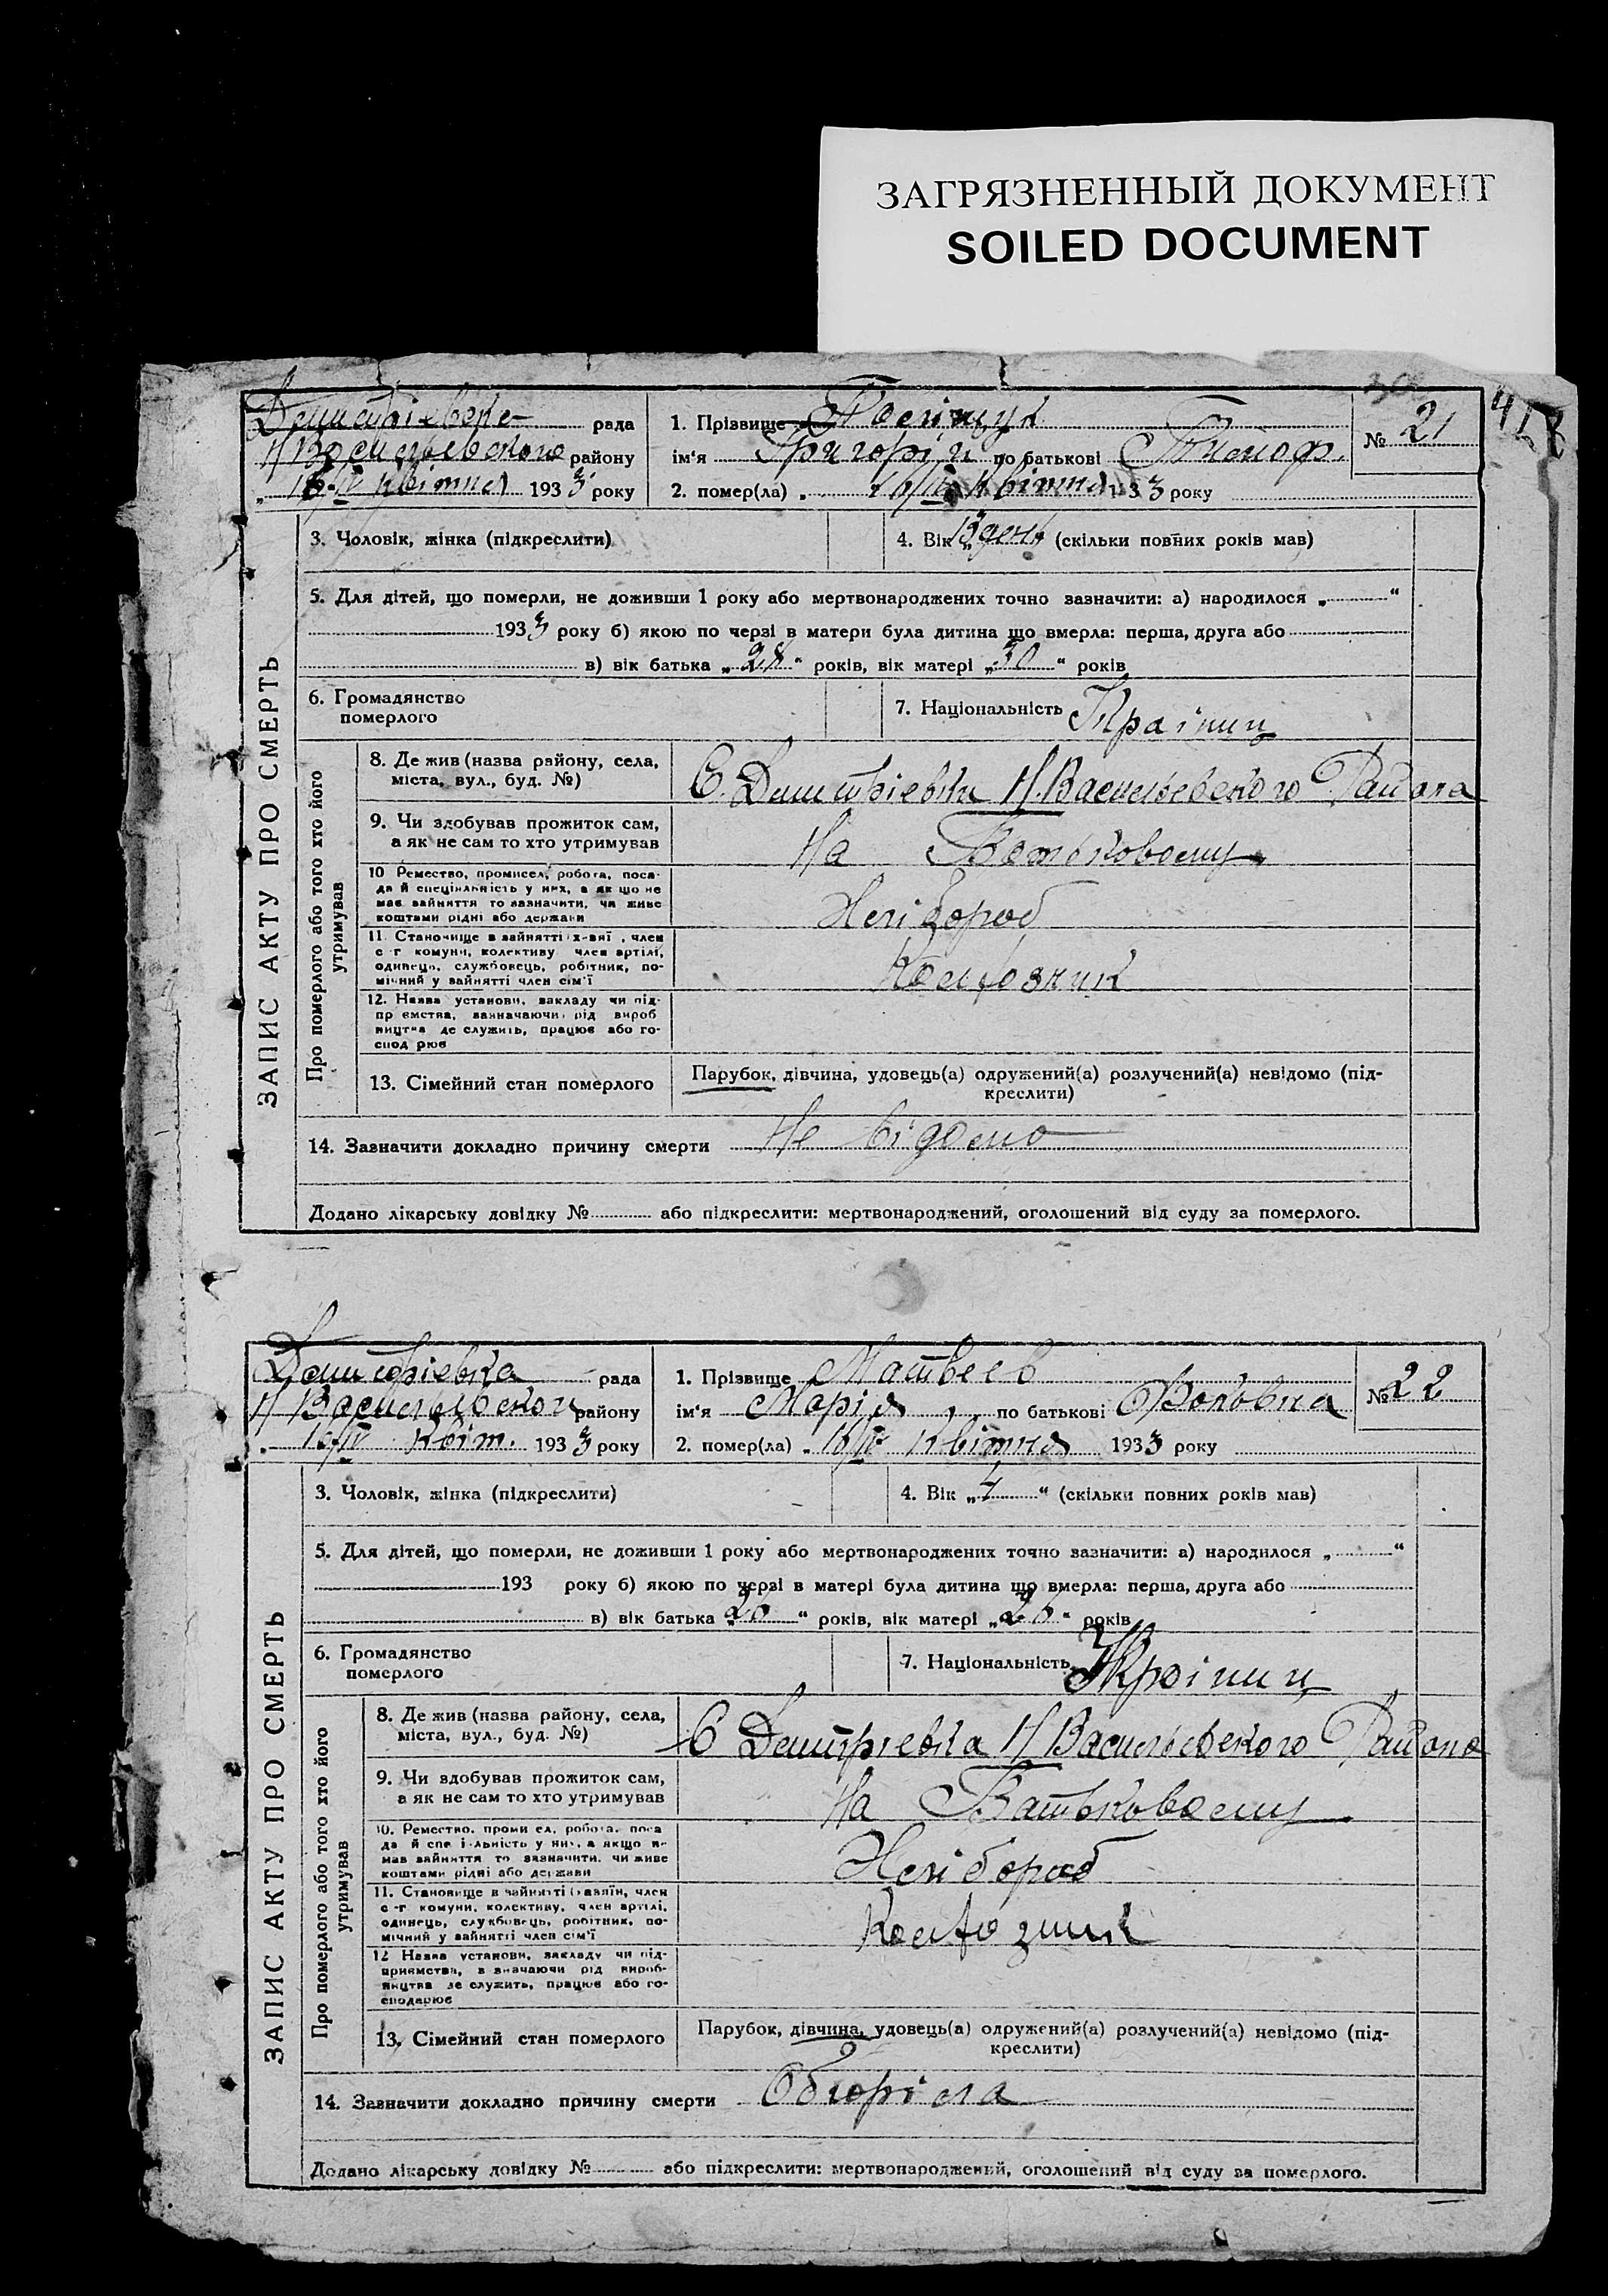 ЗАГРЯЗНЕННЫЙ ДОКУМЕНТ
SOILED DOCUMENT
417
Дмитрієвсь- рада
Н Васильевського району
16/IV квітня 1933 року
1. Прізвище Поліщук
ім'я Григорій по батькові Тимоф.
№ 21
2. помер(ла) „ 16/IV квітня 1933 року
ЗАПИС АКТУ ПРО СМЕРТЬ
3. Чоловік, жінка (підкреслити)
4. Вік „ день (скільки повних років мав)
5. Для дітей, що померли, не доживши 1 року або мертвонароджених точно зазначити: а) народилося „ “
1933 року б) якою по черзі в матери була дитина що вмерла: перша, друга або
в) вік батька „28“ років, вік матері „30“ років
6. Громадянство
померлого
7. Національність Країниц
Про померлого або того хто його
утримував
8. Де жив (назва району, села,
міста, вул., буд. №)
С. Дмитрієвки Н.Васильевського Района
9. Чи здобував прожиток сам,
а як не сам то хто утримував
На Батьковому
10 Ремество, промисел, робота, поса-
да й спеціяльність у них, а як що не
має зайняття то зазначити, чи живе
коштами рідні або держави
Хлібороб
11. Становище в зайнятті х-вяї , член
с-г комуни, колективу член артілі,
одинець, службовець, робітник, по-
мічний у зайнятті член сім'ї
Колгозник
12. Назва установи, закладу чи під-
пр ємства, зазначаючи рід вироб
ництва де служить, працює або го-
спод рює
13. Сімейний стан померлого
Парубок, дівчина, удовець(а) одружений(а) розлучений(а) невідомо (під-
креслити)
14. Зазначити докладно причину смерти Не відомо
Додано лікарську довідку № або підкреслити: мертвонароджений, оголошений від суду за померлого.
Дмитрієвка рада
Н Васильевского району
16/IV квіт. 1933 року
1. Прізвище Матвеев
ім'я Марія по батькові
№ 22
2. помер(ла) „ 16/IV квітня 1933 року
ЗАПИС АКТУ ПРО СМЕРТЬ
3. Чоловік, жінка (підкреслити)
4. Вік „ “ (скільки повних років мав)
5. Для дітей, що померли, не доживши 1 року або мертвонароджених точно зазначити: а) народилося „ “
193 року б) якою по черзі в матері була дитина що вмерла: перша, друга або
в) вік батька „26“ років, вік матері „26“ років
6. Громадянство
померлого
7. Національність Україниц
Про померлого або того хто його
утримував
8. Де жив (назва району, села,
міста, вул., буд. №)
С Дмитрієвка Н Васильевского Района
9. Чи здобував прожиток сам,
а як не сам то хто утримував
На Батьковому
10. Ремество, проми ел, робота, поса
да й спе і-льність у них, а якщо н-
має зайняття то зазначити, чи живе
коштами рідні або держави
Хлібороб
11. Становище в зайнятті (хазяїн, член
с-г комуни, колективу, член артілі,
одинець, службовець, робітник, по-
мічний у зайнятті член сім'ї
Колгозник
12 Назва установи, закладу чи під-
приємства, зазначаючи рід вироб-
ництва де служить, працює або го-
сподарює
13. Сімейний стан померлого
Парубок, дівчина, удовець(а) одружений(а) розлучений(а) невідомо (під-
креслити)
14. Зазначити докладно причину смерти Обгоріла
Додано лікарську довідку № або підкреслити: мертвонароджений, оголошений від суду за померлого.